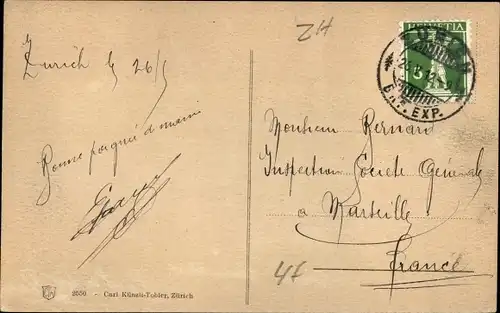 ZH
Zurich le 26/5
Bonne poignée de main
HELVETIA
5
EXP.
Monsieur Bernard
Inspection Societe Générale
a Marseille
France
2650 - Carl Künzli-Tobler, Zürich